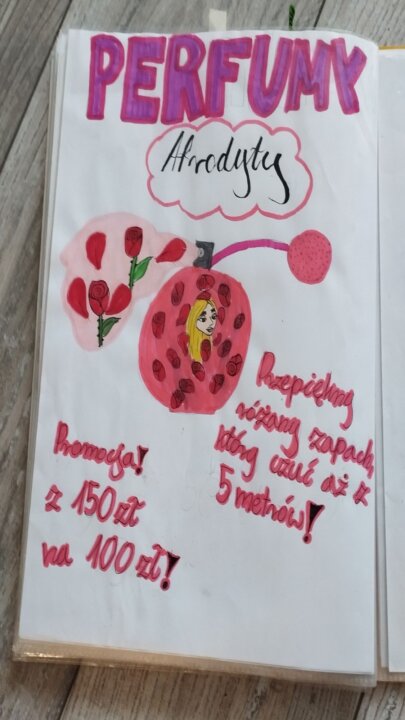 PERFUMY
Afrodyty
Przepiękny
różany zapach,
który czuć aż z
5 metrów!
Promocja!
z 150 zł
na 100 zł!